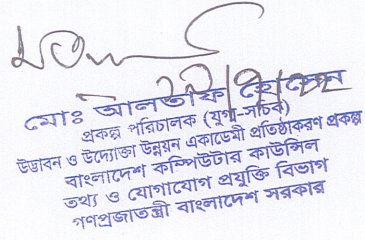 মোঃ আলতাফ হোসেন
প্রকল্প পরিচালক (যুগ্ম-সচিব)
উদ্ভাবন ও উদ্যোক্তা উন্নয়ন একাডেমী প্রতিষ্ঠাকরণ প্রকল্প
বাংলাদেশ কম্পিউটার কাউন্সিল
তথ্য ও যোগাযোগ প্রযুক্তি বিভাগ
গণপ্রজাতন্ত্রী বাংলাদেশ সরকার